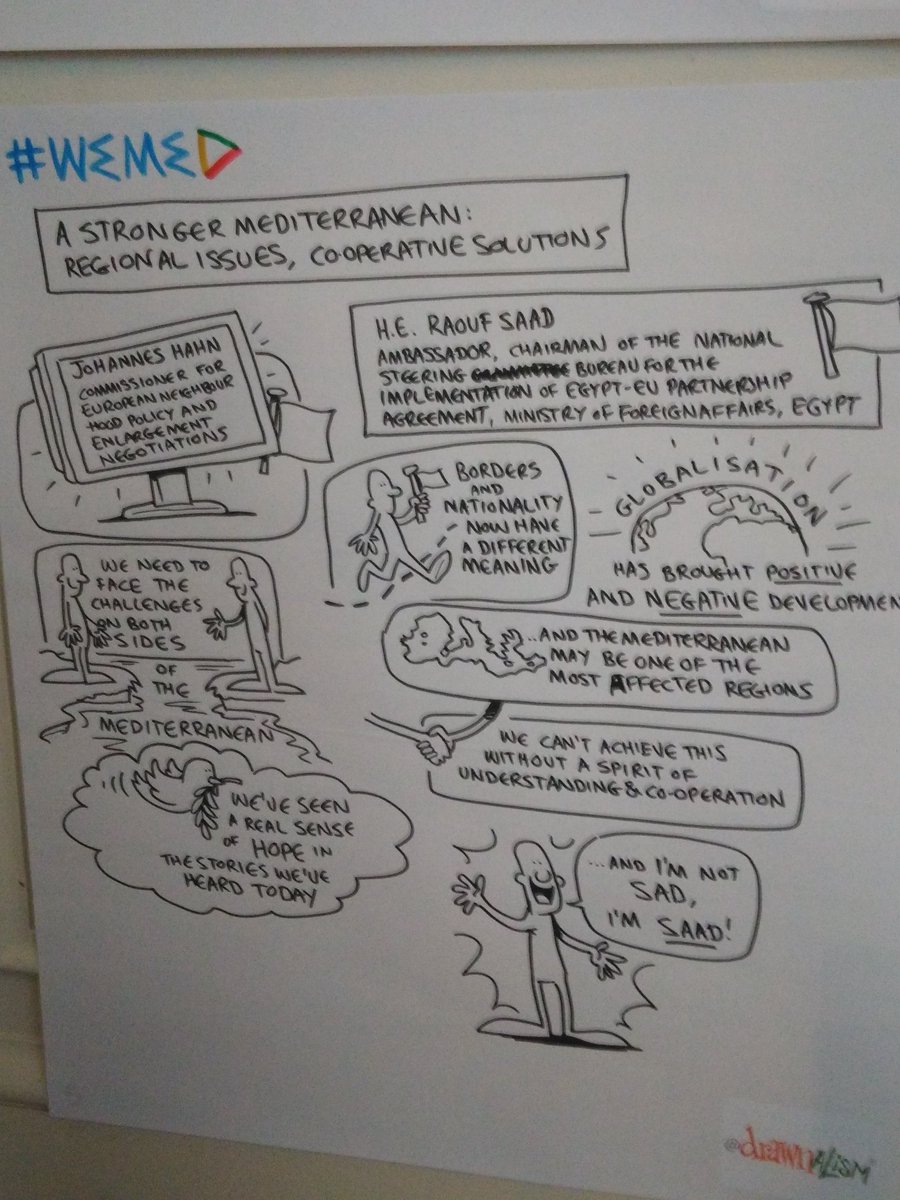 #WEMED
A STRONGER MEDITERRANEAN:
REGIONAL ISSUES, CO-OPERATIVE SOLUTIONS
JOHANNES HAHN
COMMISSIONER FOR
EUROPEAN NEIGHBOUR
HOOD POLICY AND
ENLARGEMENT
NEGOTIATIONS
WE NEED TO
FACE THE
CHALLENGES
ON BOTH
SIDES
OF
THE
MEDITERRANEAN
WE'VE SEEN
A REAL SENSE
OF HOPE IN
THE STORIES WE'VE
HEARD TODAY
H.E. RAOUF SAAD
AMBASSADOR, CHAIRMAN OF THE NATIONAL
STEERING BUREAU FOR THE
IMPLEMENTATION OF EGYPT-EU PARTNERSHIP
AGREEMENT, MINISTRY OF FOREIGN AFFAIRS, EGYPT
BORDERS
AND
NATIONALITY
NOW HAVE
A DIFFERENT
MEANING
GLOBALISATION
HAS BROUGHT POSITIVE
AND NEGATIVE DEVELOPMEN
...AND THE MEDITERRANEAN
MAY BE ONE OF THE
MOST AFFECTED REGIONS
WE CAN'T ACHIEVE THIS
WITHOUT A SPIRIT OF
UNDERSTANDING & CO-OPERATION
...AND I'M NOT
SAD,
I'M SAAD!
@drawnalism